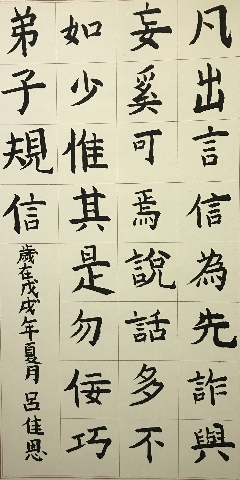 凡出言信為先詐與
妄奚可焉說話多不
如少惟其是勿佞巧
弟子規信
歲在戊戌年夏月呂佳恩